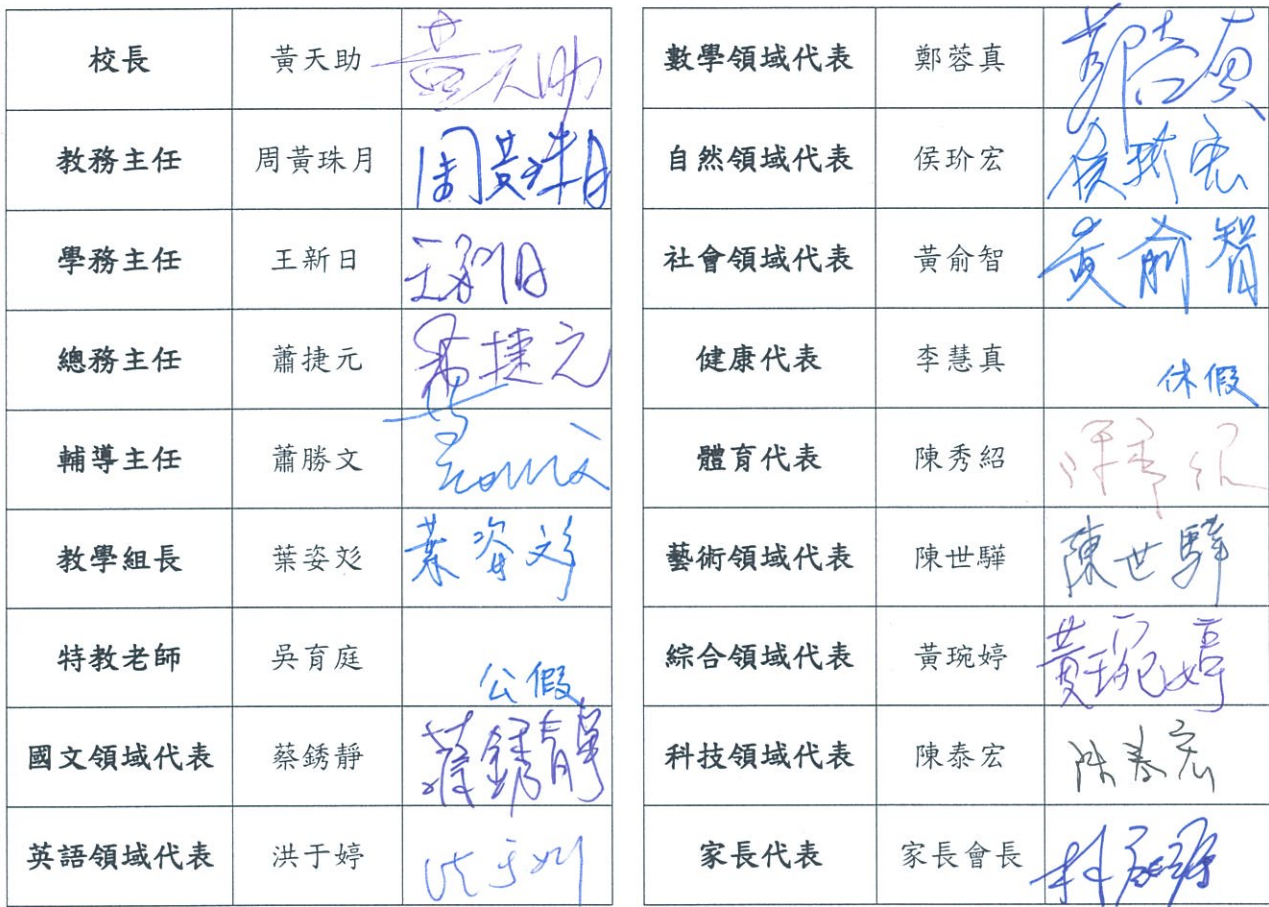 校長 黃天助 黃天助
教務主任 周黃珠月 周黃珠月
學務主任 王新日 王新日
總務主任 蕭捷元 蕭捷元
輔導主任 蕭勝文
教學組長 葉姿彣 葉姿彣
特教老師 吳育庭 公假
國文領域代表 蔡銹靜 蔡銹靜
英語領域代表 洪于婷 洪于婷
數學領域代表 鄭蓉真 鄭蓉真
自然領域代表 侯玠宏 侯玠宏
社會領域代表 黃俞智 黃俞智
健康代表 李慧真 休假
體育代表 陳秀紹 陳秀紹
藝術領域代表 陳世驊 陳世驊
綜合領域代表 黃琬婷 黃琬婷
科技領域代表 陳泰宏 陳泰宏
家長代表 家長會長